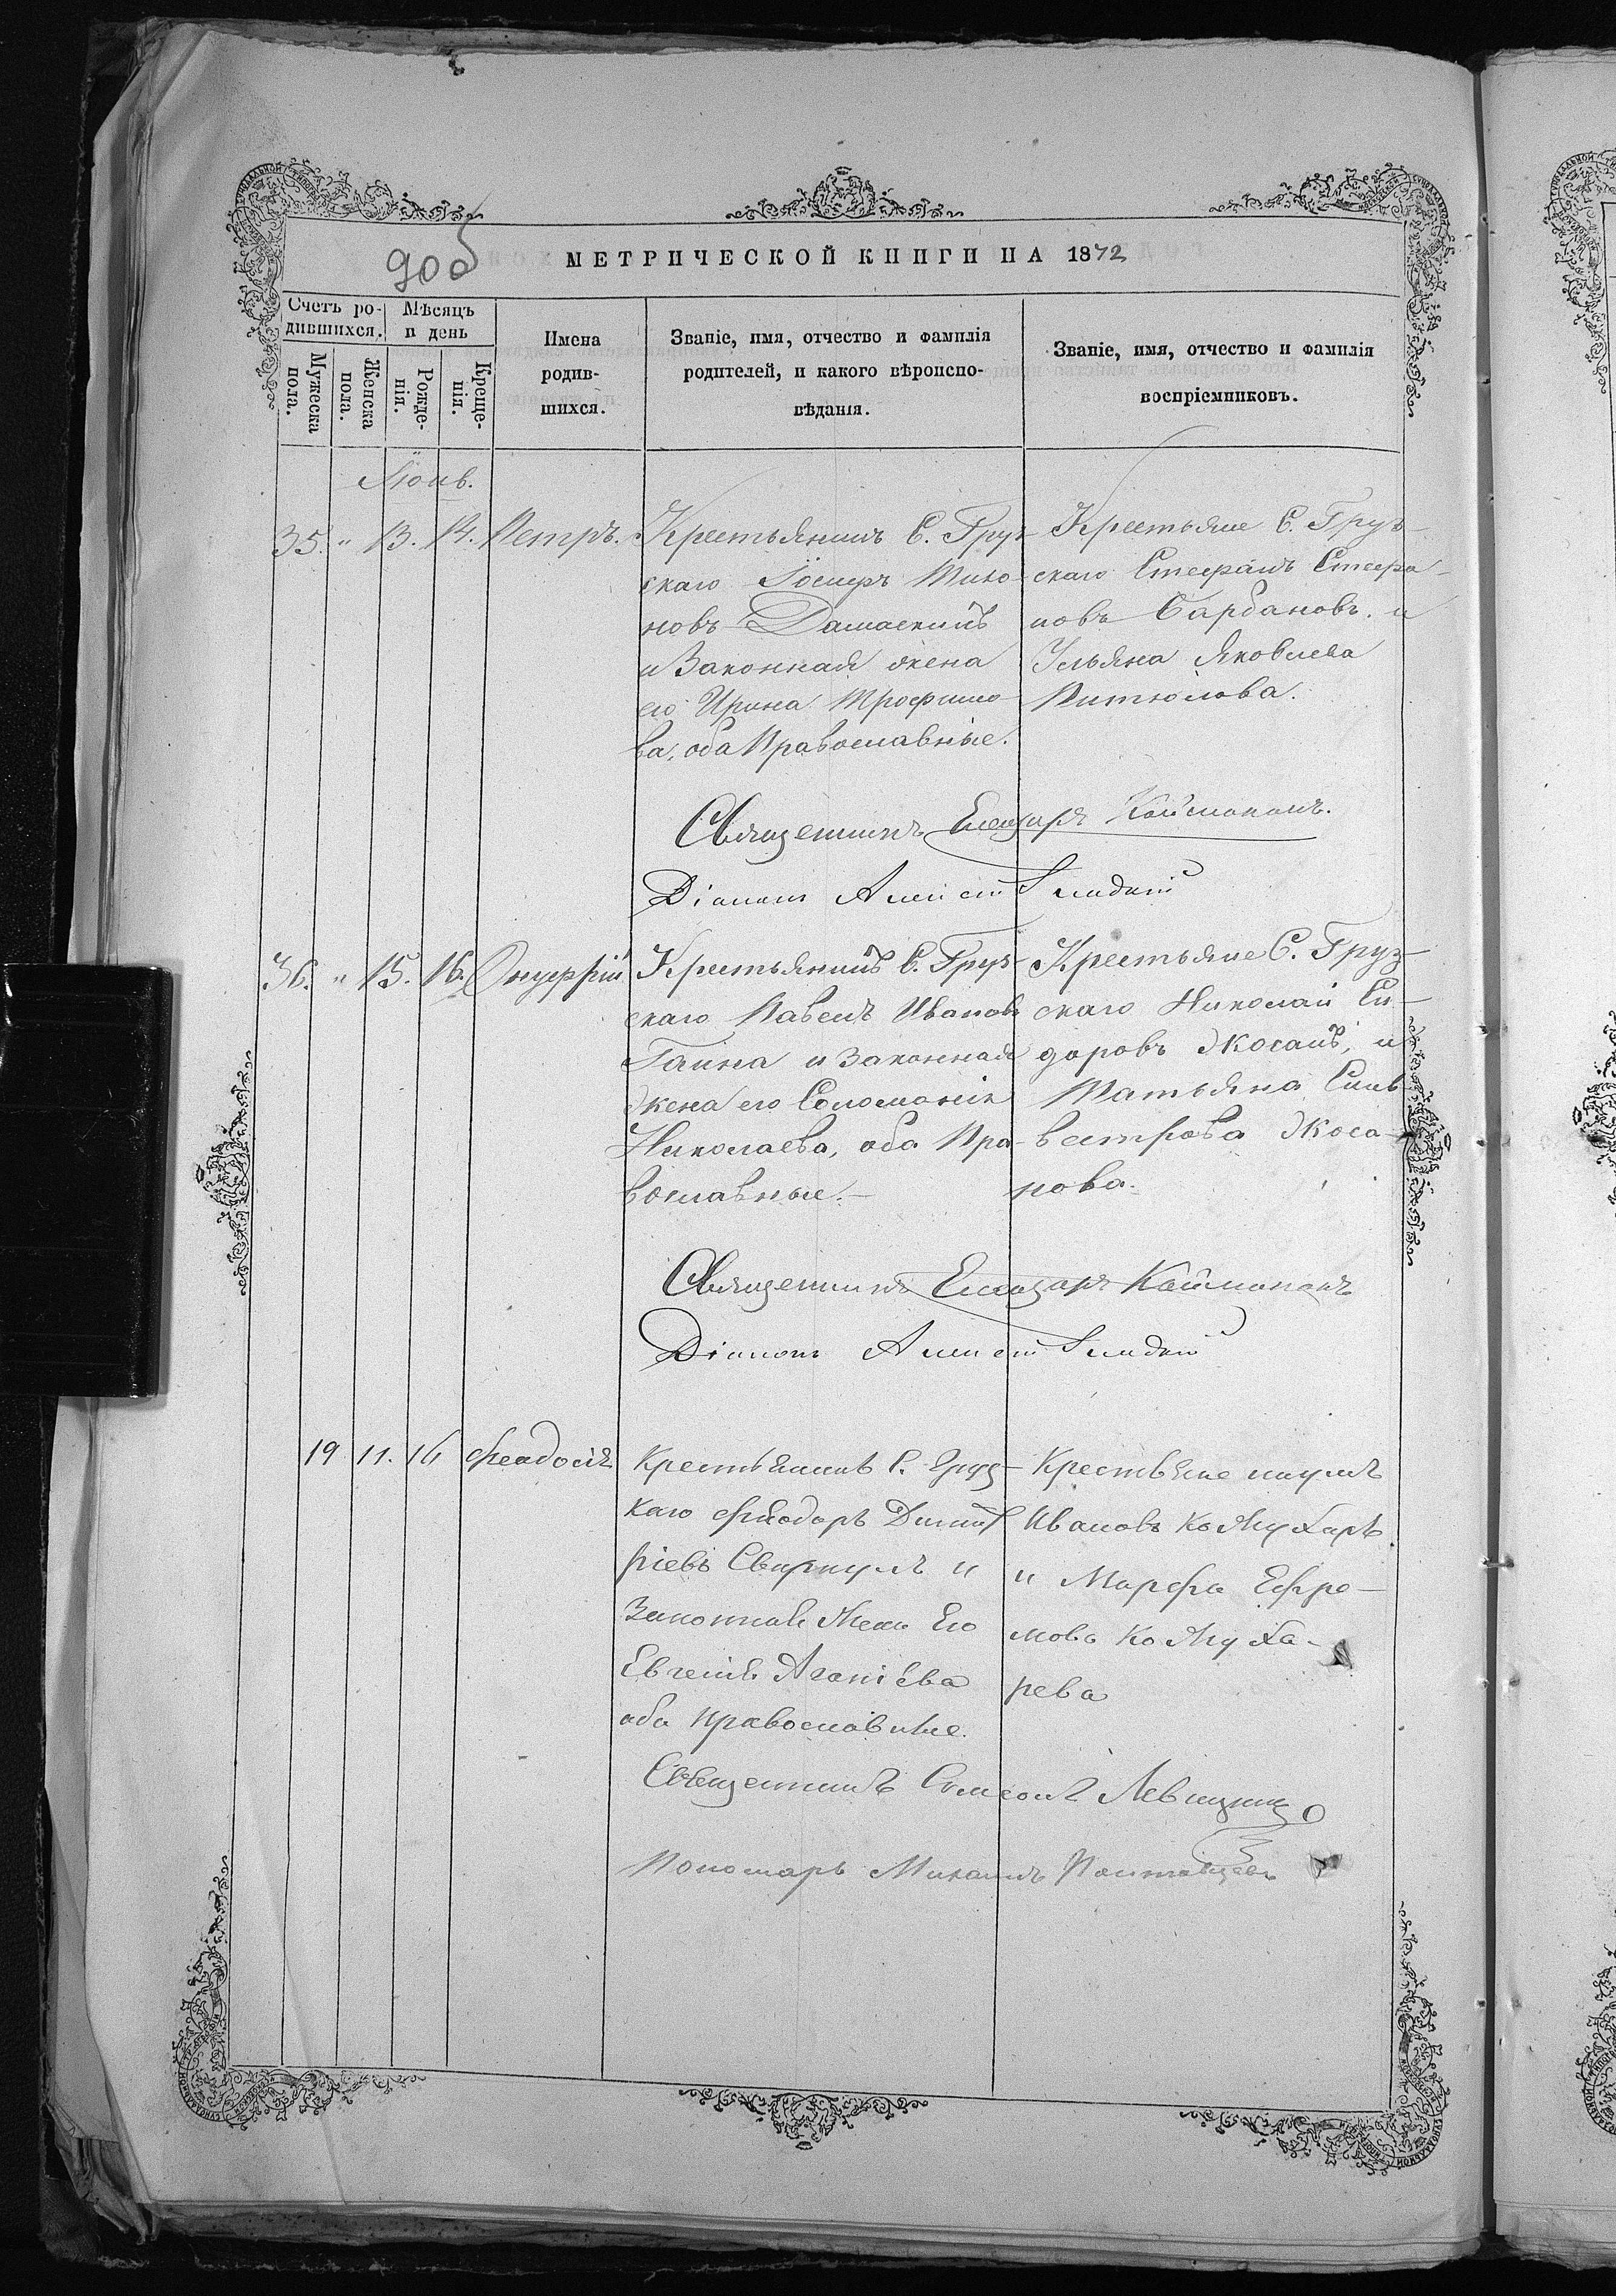 90об
МЕТРИЧЕСКОЙ КНИГИ НА 1872
Счетъ ро-
дившихся.
Мѣсяцъ
и день
Мужеска
пола.
Женска
пола.
Рожде-
нія.
Креще-
нія.
Имена
родив-
шихся.
Званіе, имя, отчество и фамилія
родителей, и какого вѣроиспо-
вѣданія.
Званіе, имя, отчество и фамилія
воспріемниковъ.
Іюнь.
35. " 13. 14. Петръ.
Крестьянинъ С. Груз-
скаго Іосифъ Тихо-
новъ
и Законная жена
его Ирина Трофимо-
ва, оба Православные.
Крестьяне С. Груз-
скаго Стефанъ Стефа-
новъ Барбановъ и
Ульяна Яковлева
Священникъ Елеазаръ Каймаканъ.
Діаконъ
36. " 15. 16. Онуфрій
Крестьянинъ С. Груз-
скаго Павелъ Ивановъ
Гаина и Законная
жена его Соломонія
Николаева, оба Пра-
вославные.-
Крестьяне С. Груз-
скаго Николай Си-
доровъ Жосанъ, и
Татьяна Силь-
вестрова Жоса-
нова.
Священникъ Елеазаръ Каймаканъ
Діаконъ
19 11. 16 Феадосія
Крестьянинъ С. Груз-
каго Фіодоръ Димит
ріевъ и
Законная Жена Его
Евгенія Агапіева
оба православные.
Крестьяне наумъ
Ивановъ Кожухаръ
и Марфа Ефре-
мова Кожуха-
рева
Священникъ Симеонъ Левицкій
Пономарь Михаилъ